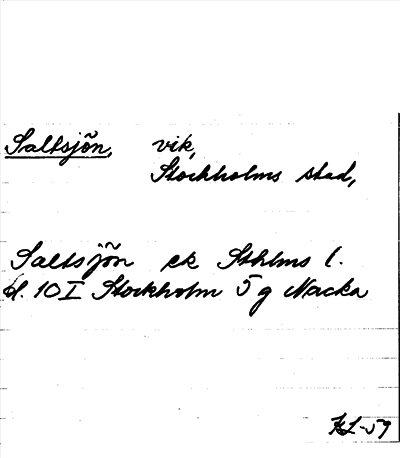 Saltsjön, vik,
Stockholms stad,
Saltsjön ek Sthlms l.
d. 10 I Stockholm 5 g Nacka
KL-59